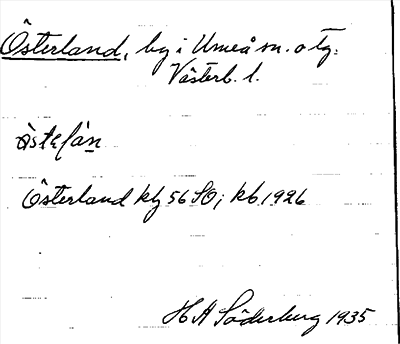 Österland, by i Umeå sn. o tg.
Västerb. l.
Österland kbl 56 SO; kb. 1926
H A Söderberg 1935